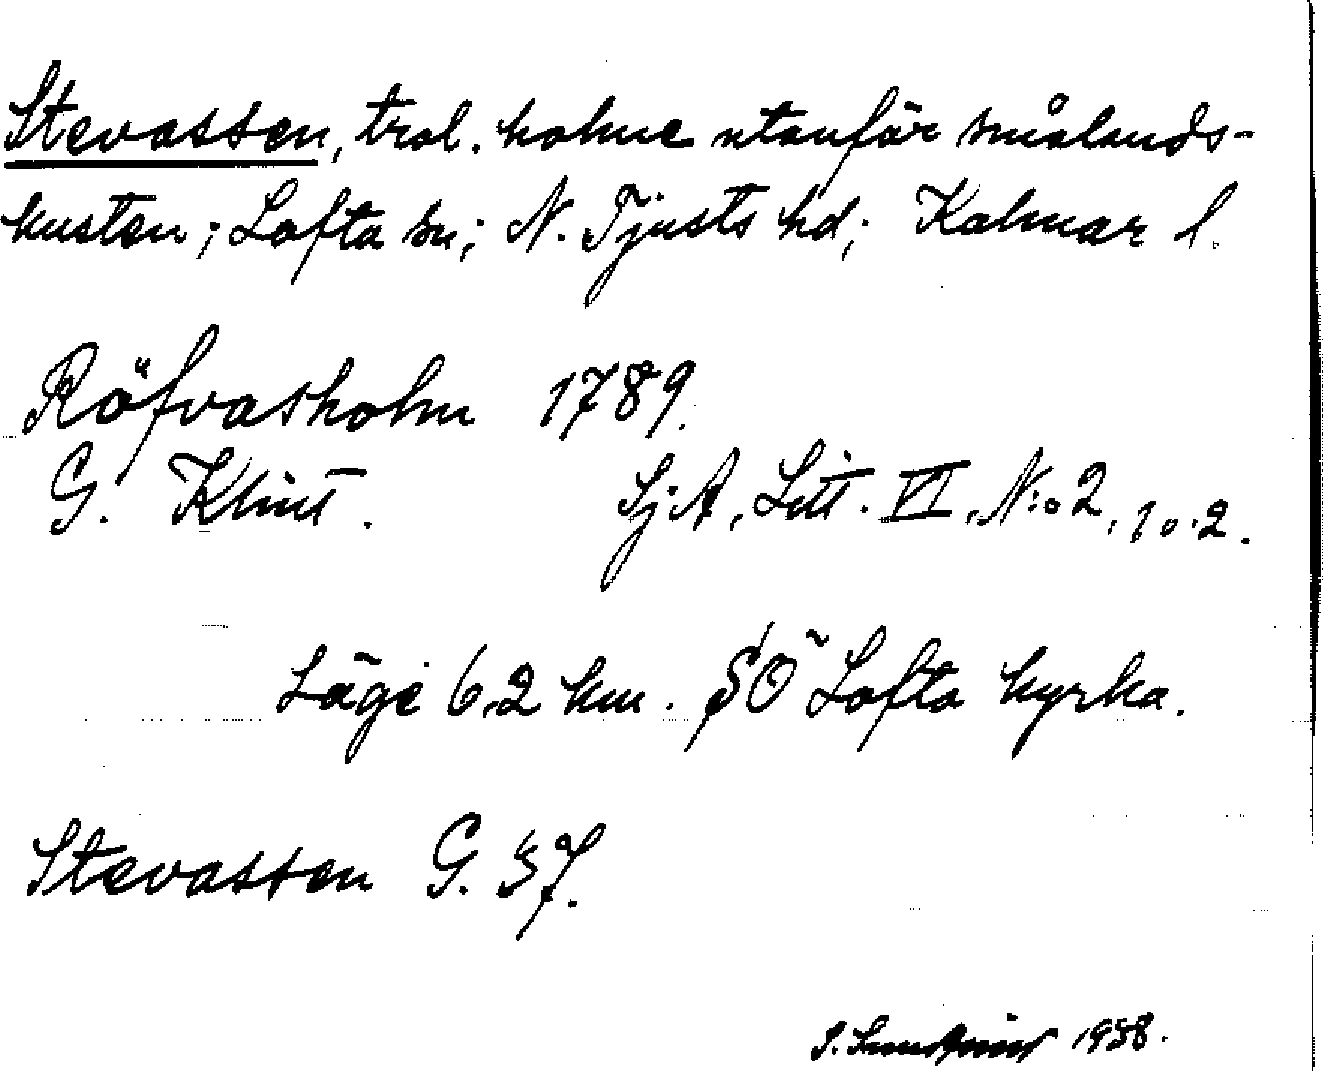 Stevassen, trol. holme utanför smålands-
kusten; Lofta sn; N. Tjusts hd; Kalmar l.
Röfvasholm 1789.
G. Klint. Sj.A, Litt. VI, N:o 2, 1 o. 2.
Läge 6,2 km. SÖ Lofta kyrka.
Stevassen G. 37.
S. 1938.